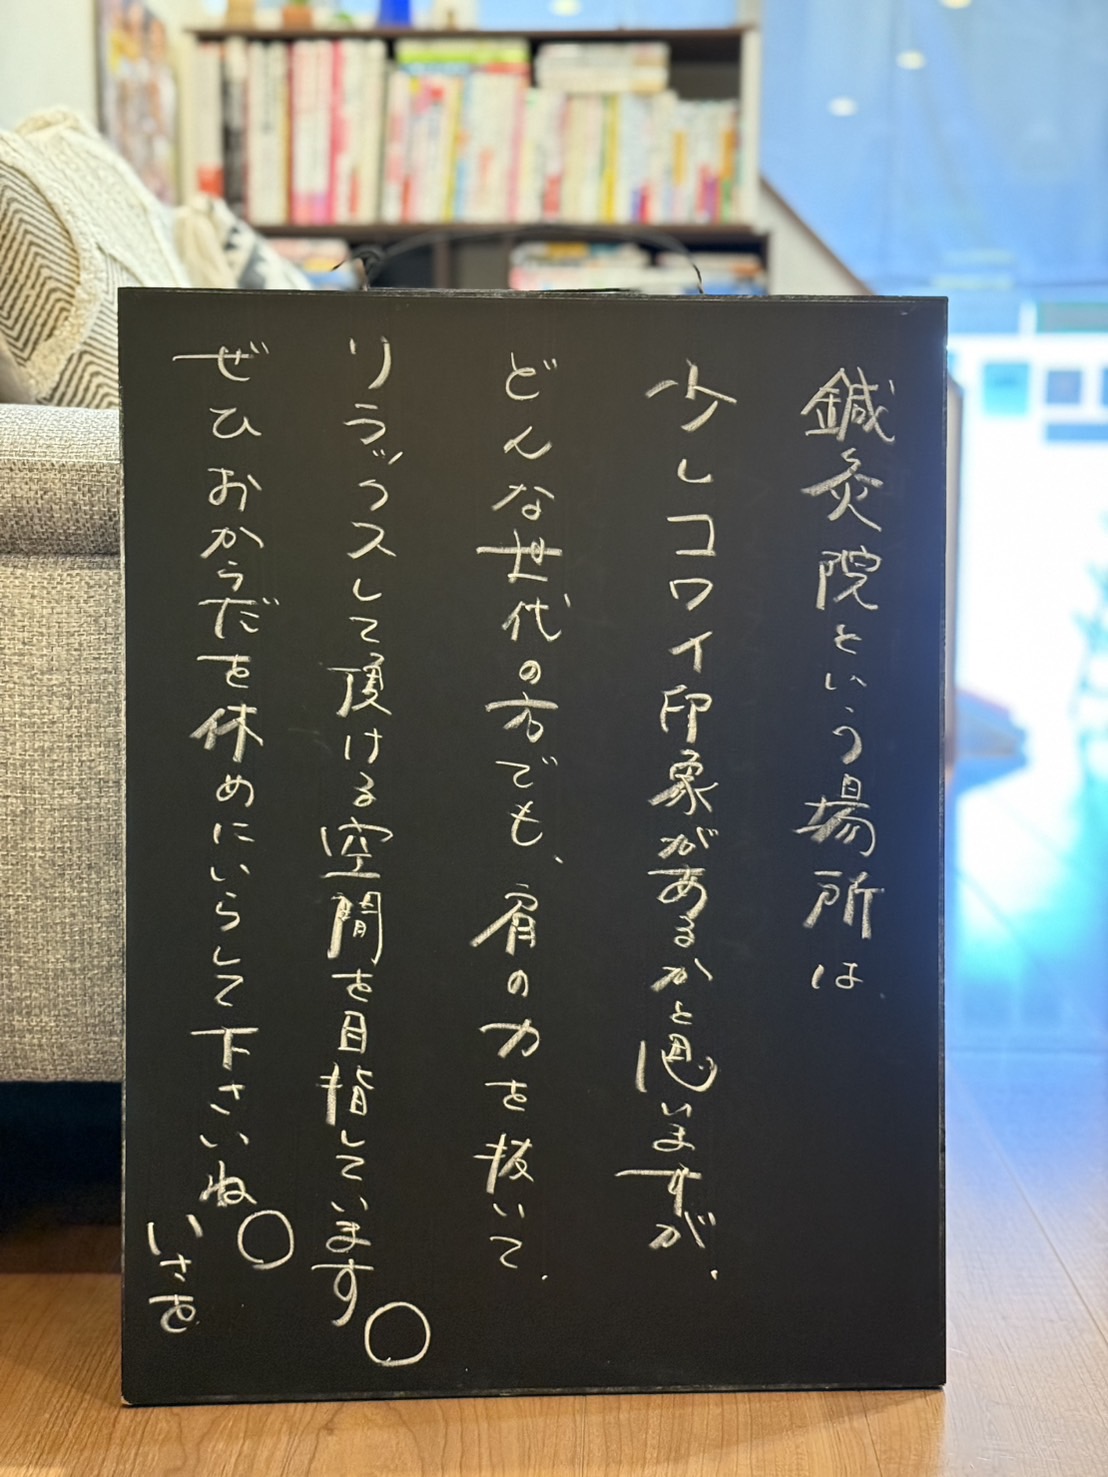 鍼灸院という場所は
少しコワイ印象があるかと思いますが、
どんな世代の方でも、肩の力を抜いて、
リラックスして頂ける空間を目指しています。
ぜひおからだを休めにいらして下さいね。
いさを